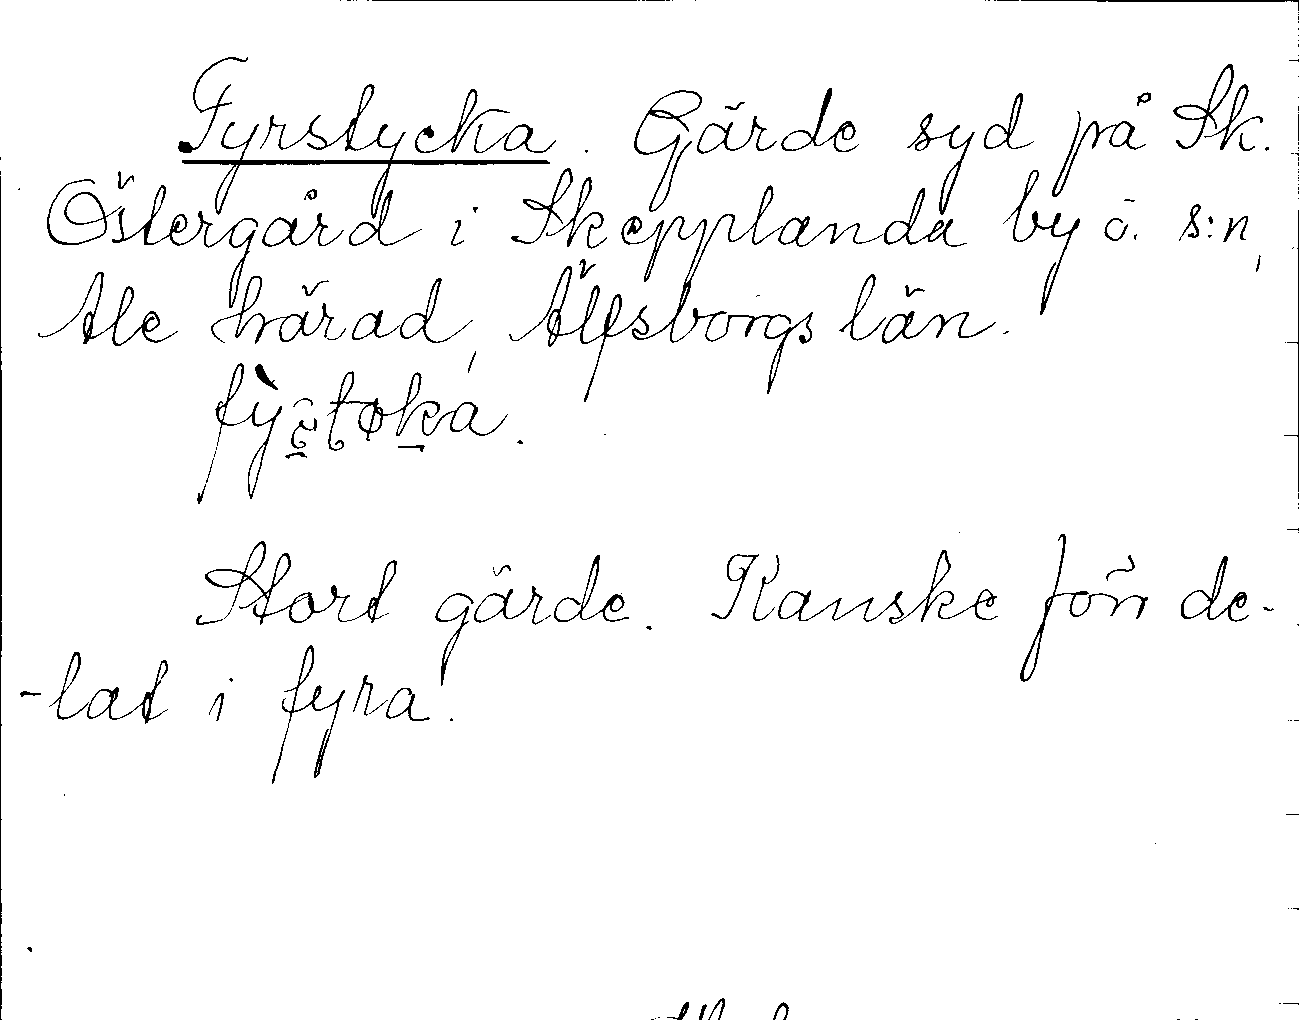 Fyrstycka. Gärde syd på Sk.
Östergård i Skepplanda by o. s:n,
Ale härad, Älfsborgs län.
Stort gärde. Kanske förr de-
-lat i fyra.